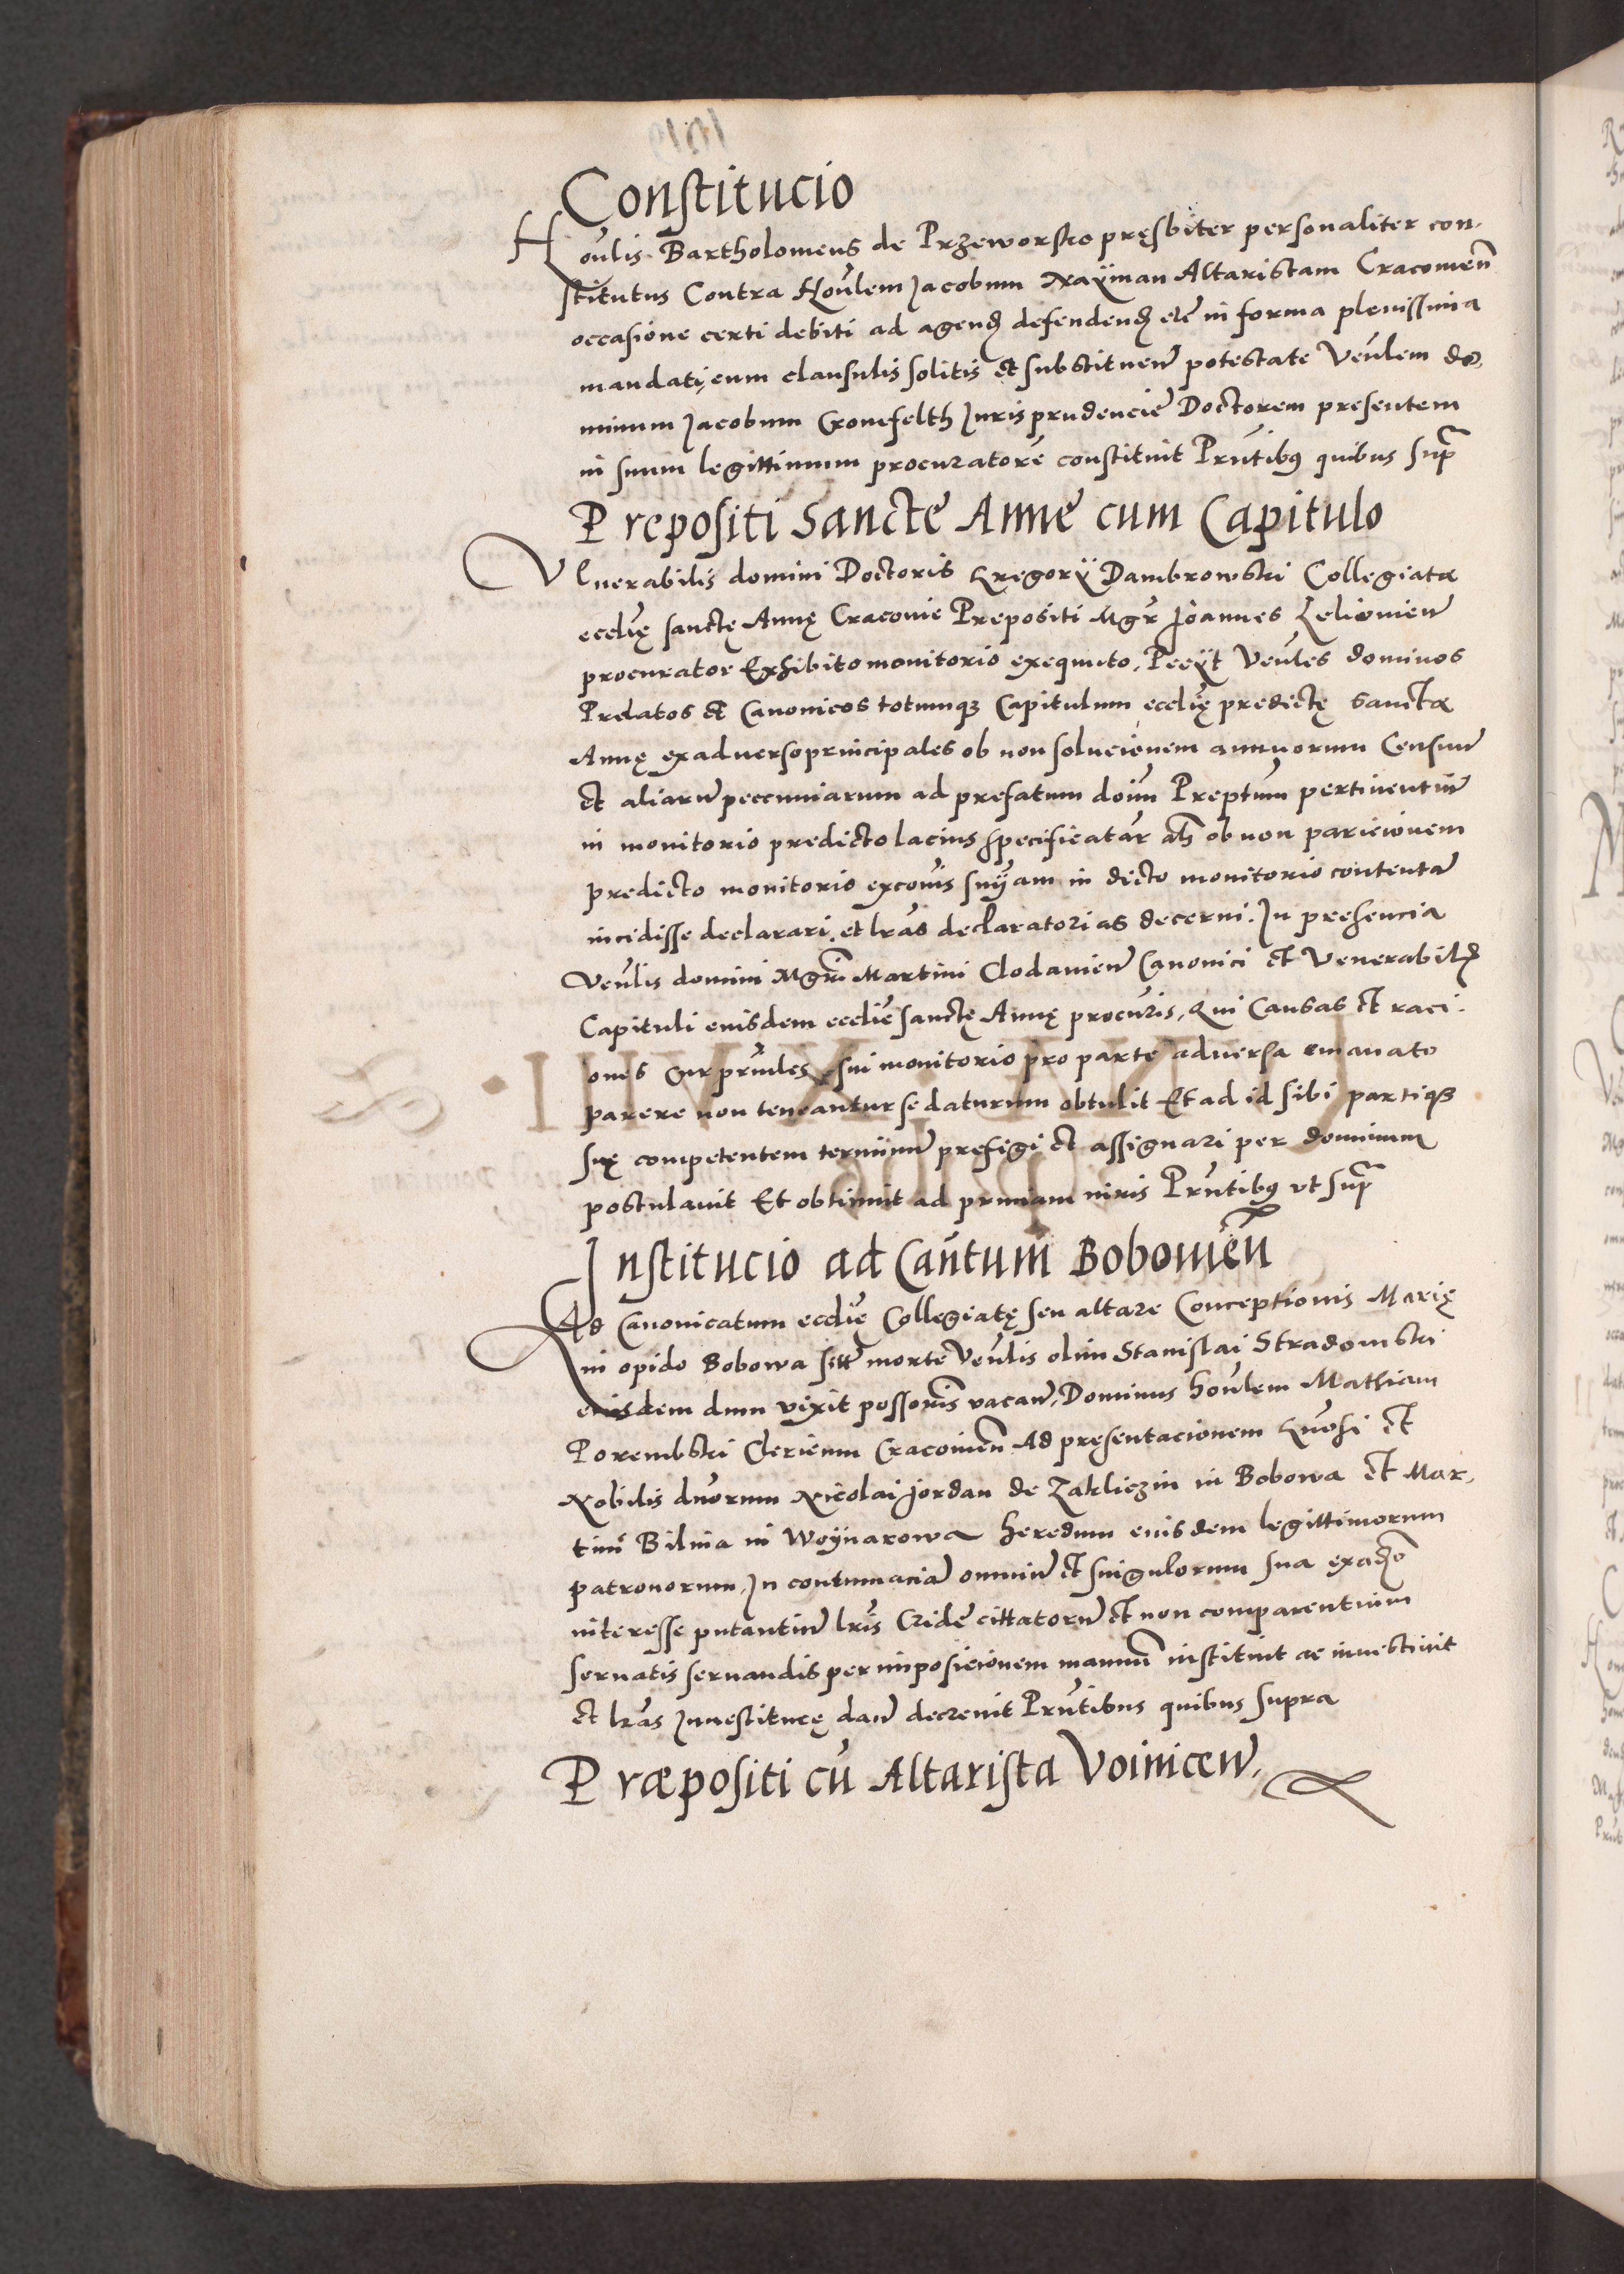 Constitucio
Honlis Bartholomeus de Przeworsko pręsbiter personaliter con-
stitutus Contra Honlem Jacobum Nayman Altaristam Cracouien
occasione certi debiti ad agend defendend etc in forma plenissima
mandati, cum clausulis solitis et substituen potestate Venlem do,
minum Jacobum Gronefelth Jurisprudencie Doctorem presentem
in suum legittimum procuratore constituit Prntibus quibus supra
Prepositi Sancte Anne cum Capitulo
Venerabilis domini Doctoris Gregory Dambrowski Collegiatæ
ecclię sanctę Annę Cracouie Prepositi Mgr Joannes Leliouien
procurator Exhibito monitorio exequuto, Peeyt Venles dominos
Prelatos et Canonicos totumque Capitulum ecclię predictę Sanctæ
Annę exaduerso principales ob non solucionem annuorum Censuum
et aliarum peccuniarum ad prefatum dom Preptum pertinentium
in monitorio predicto lacius specificatar als ob non paricionem
predicto monitorio excois sniam in dicto monitorio contentam
incidisse declarari, et lras declaratorias decerni. In presencia
Venlis domini Mgri Martini Clodauien Canonici et Venerabilis
Capituli eiusdem ecclie sanctę Annę procuris, Qui Causas et raci-
ones cur prinles sui monitorio pro parte aduersa emanato
parere non teneantur se daturum obtulit Et ad id sibi partique
suę competentem terminum prefigi et assignari per dominum
postulauit Et obtinuit ad primam iuris Prntibus vt supra
Institucio ad Cantum Bobouien
Ad Canonicatum ecclię Collegiatę seu altare Conceptionis Marię
in opido Bobowa situm morte Venlis olim Stanislai Stradomski
eiusdem dum vixit possoris vacan, Dominus honlem Mathiam
Porembski Clericum Cracouien Ad pręsentacionem Gnosi et
Nobilis dnorum Nicolai Jordan de Zakliczin in Bobowa et Mar,
tini Bilina in Woynarowa heredum eiusdem legittimorum
patronorum, In contumaciam omnium et singulorum sua exaduerso
interesse putantium lris Cride cittatorum et non comparentium
seruatis seruandis per imposicionem manuum instituit ac inuestiuit
et lras Inuestiturę dan decreuit Prntibus quibus supra
Præpositi cu Altarista Voinicen,